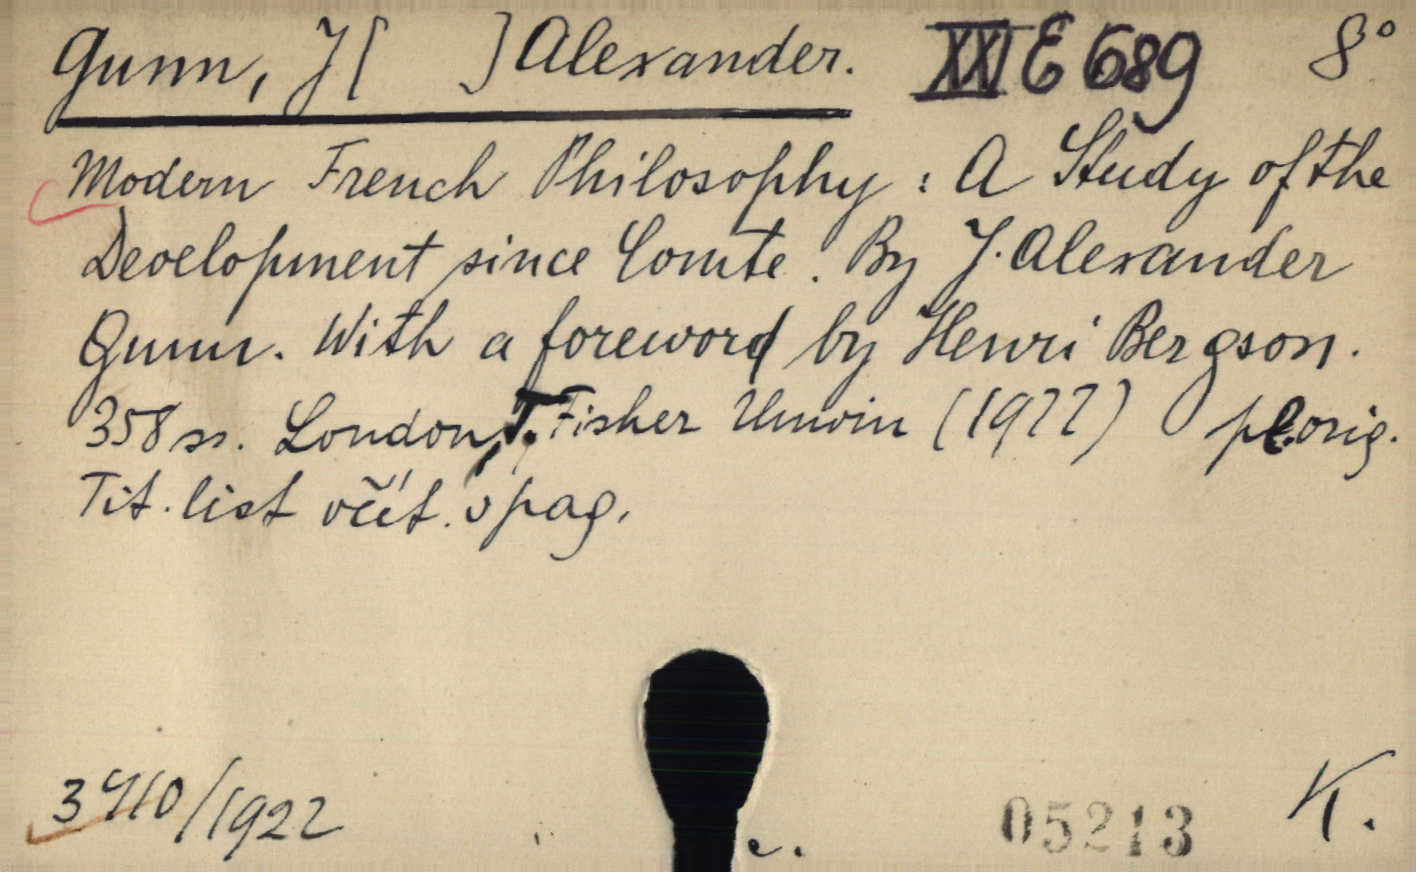 Gunn, J[ ] Alexander. XXI E 689 8°
Modern French Philosophy: A Study of the
Development since Comte. By J. Alexander
Gunn. With a foreword by Henri Bergson.
358 ss. London, T. Fisher Unwin (1922) pl. orig.
Tit. list včít. v pag.
3410/1922 c. 05213 K.